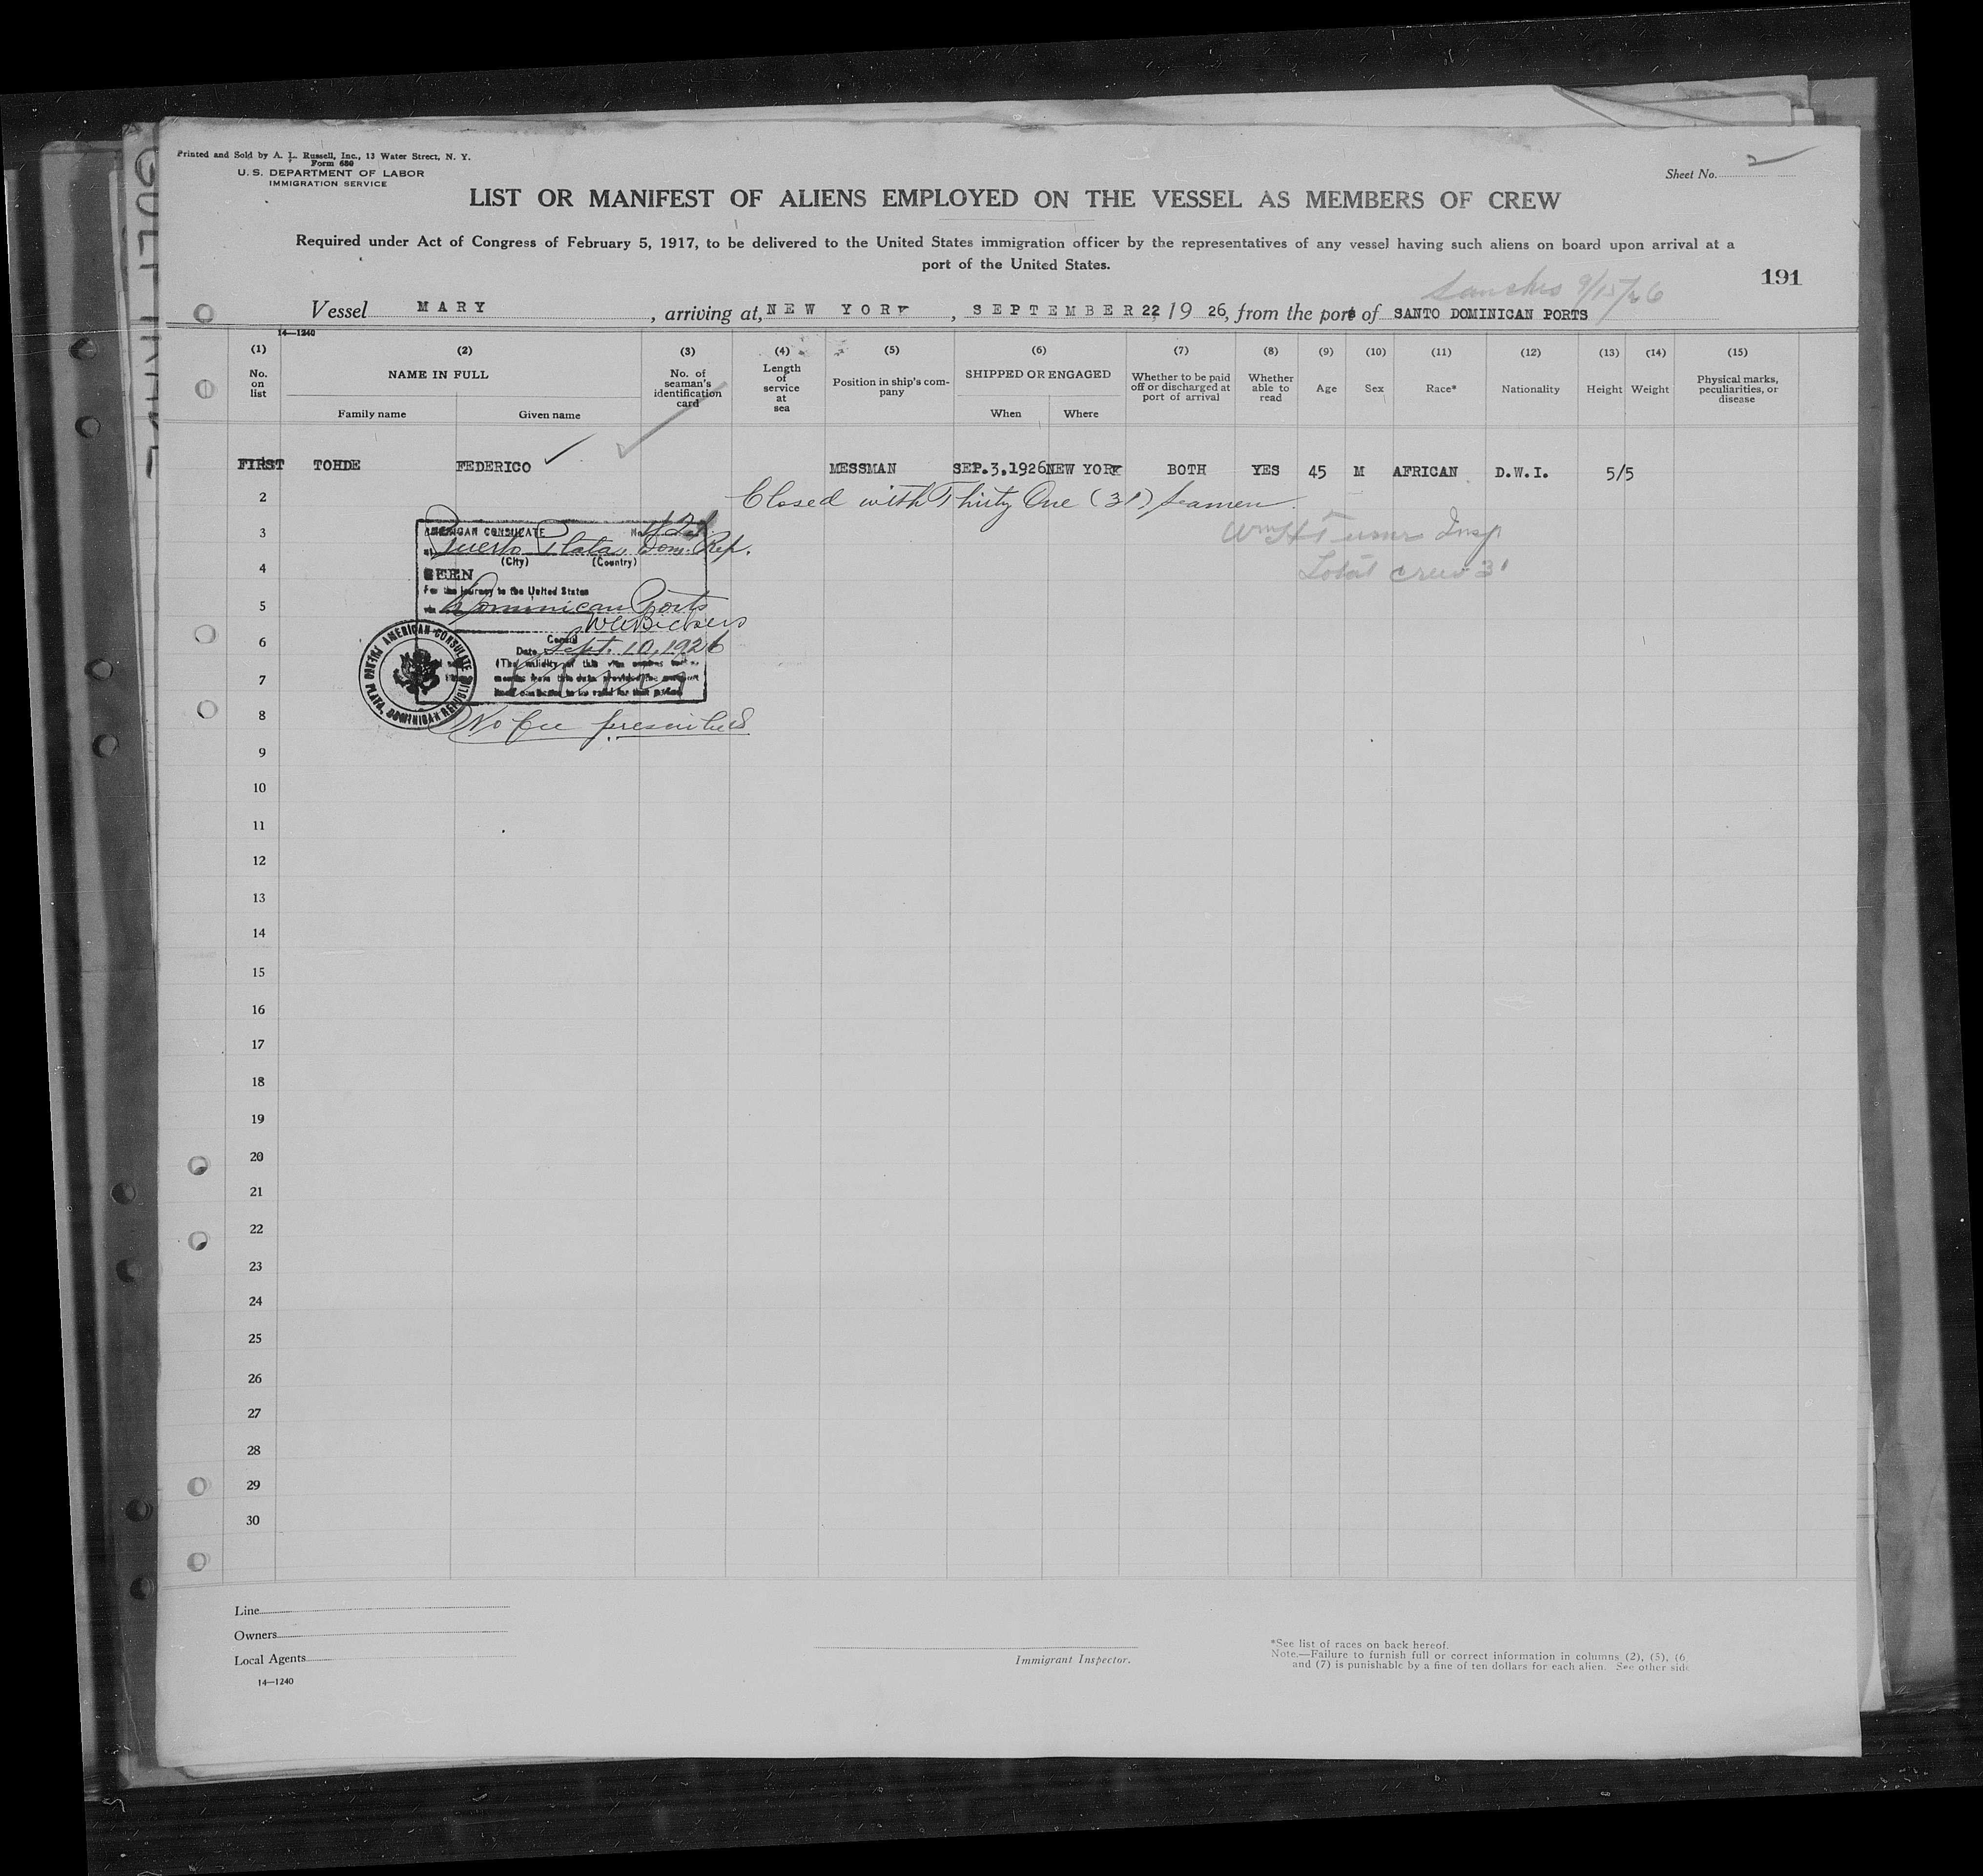 Printed and Sold by A. L. Russell, Inc., 13 Water Street, N. Y.
Form 680
U. S. DEPARTMENT OF LABOR
IMMIGRATION SERVICE
Sheet No. 2
LIST OR MANIFEST OF ALIENS EMPLOYED ON THE VESSEL AS MEMBERS OF CREW
Required under Act of Congress of February 5, 1917, to be delivered to the United States immigration officer by the representatives of any vessel having such aliens on board upon arrival at a
port of the United States.
191
9/15/26
Vessel MARY, arriving at, NEW YORK, SEPTEMBER 22, 1926, from the port of SANTO DOMINICAN PORTS
14—1240
(1) (2) (3) (4) (5) (6) (7) (8) (9) (10) (11) (12) (13) (14) (15)
No. on list
NAME IN FULL
Family name
Given name
No. of seaman's identification card
Length of service at sea
Position in ship's company
SHIPPED OR ENGAGED
When
Where
Whether to be paid off or discharged at port of arrival
Whether able to read
Age
Sex
Race*
Nationality
Height
Weight
Physical marks, peculiarities, or disease
FIRST TOHDE FEDERICO MESSMAN SEP.3.1926 NEW YORK BOTH YES 45 M AFRICAN D.W.I. 5/5
2 Closed with Thirty One (31) Seamen.
3
Wm H Turner Insp
4
Total crew 31
AMERICAN CONSULATE No.
at Puerto Plata, Dom. Rep.
(City) (Country)
SEEN
For the journey to the United States
via Dominican Ports
Consul
Date Sept. 10, 1926
(The validity of this visa expires
months from this date provided the passport
itself continues to be valid for that period)
AMERICAN CONSULATE
PUERTO PLATA, DOMINICAN REPUBLIC
No fee prescribed
5
6
7
8
9
10
11
12
13
14
15
16
17
18
19
20
21
22
23
24
25
26
27
28
29
30
Line
Owners
Local Agents
14—1240
Immigrant Inspector.
*See list of races on back hereof.
Note.—Failure to furnish full or correct information in columns (2), (5), (6
and (7) is punishable by a fine of ten dollars for each alien. See other side